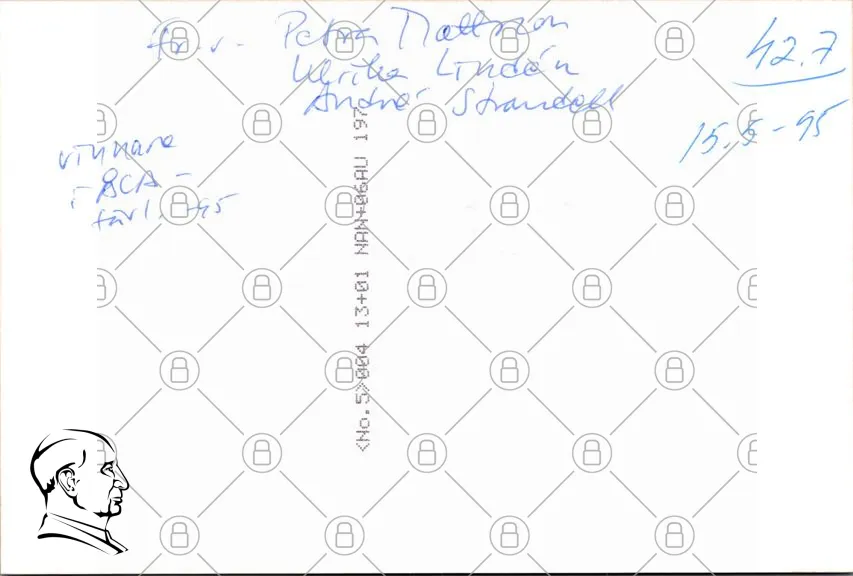 fr. v. Petra Mattsson
Ulrika Lindén
André Strandell
42.7
15.5-95
vinnare
i SCA-
tävl. -95
<No.5>004 13+01 NAN+06AU 197